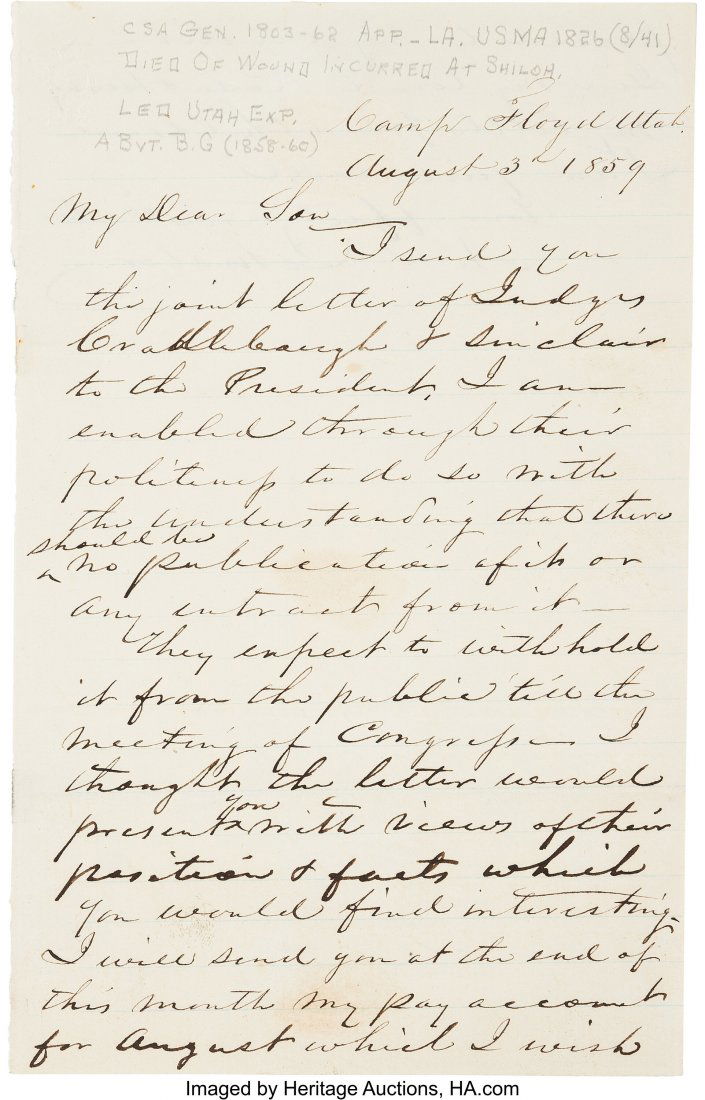 CSA GEN. 1803-62 APP. - LA. USMA 1826 (8/41)
DIED OF WOUND INCURRED AT SHILOH.
LED UTAH EXP.
A BVT. B.G (1858-60)
Camp Floyd Utah.
August 3d 1859
My Dear Son
I send you
the joint letter of Judges
Cradlebaugh & Sinclair
to the President, I am
enabled through their
politeness to do so with
the understanding that there
should be
no publication of it or
any extract from it —
They expect to withhold
it from the public 'till the
meeting of Congress — I
thought the letter would
you
present with views of their
position & facts which
you would find interesting.
I will send you at the end of
this month my pay account
for August which I wish
Imaged by Heritage Auctions, HA.com